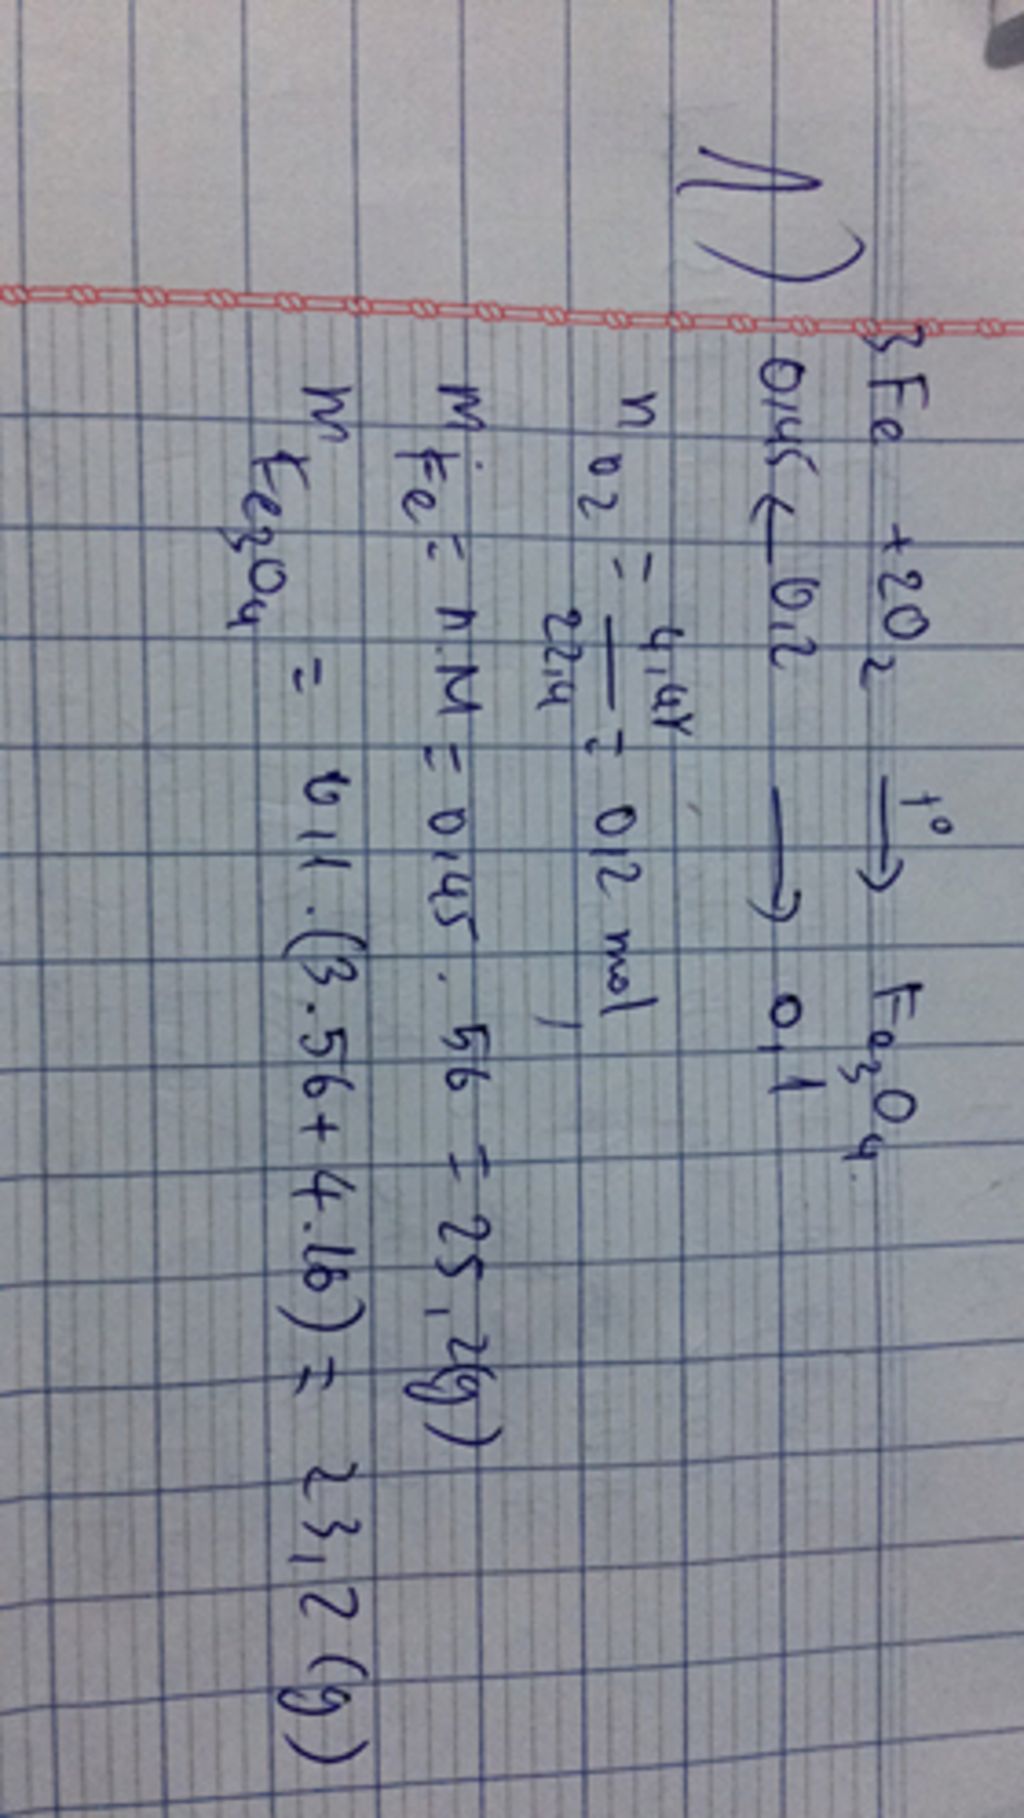 1)
3Fe + 2O2 t° → Fe3O4
0,45 ← 0,2 → 0,1
n O2 = 4,48/22,4 = 0,2 mol
m Fe = n.M = 0,45 . 56 = 25,2(g)
m Fe3O4 = 0,1 . (3.56 + 4.16) = 23,2 (g)